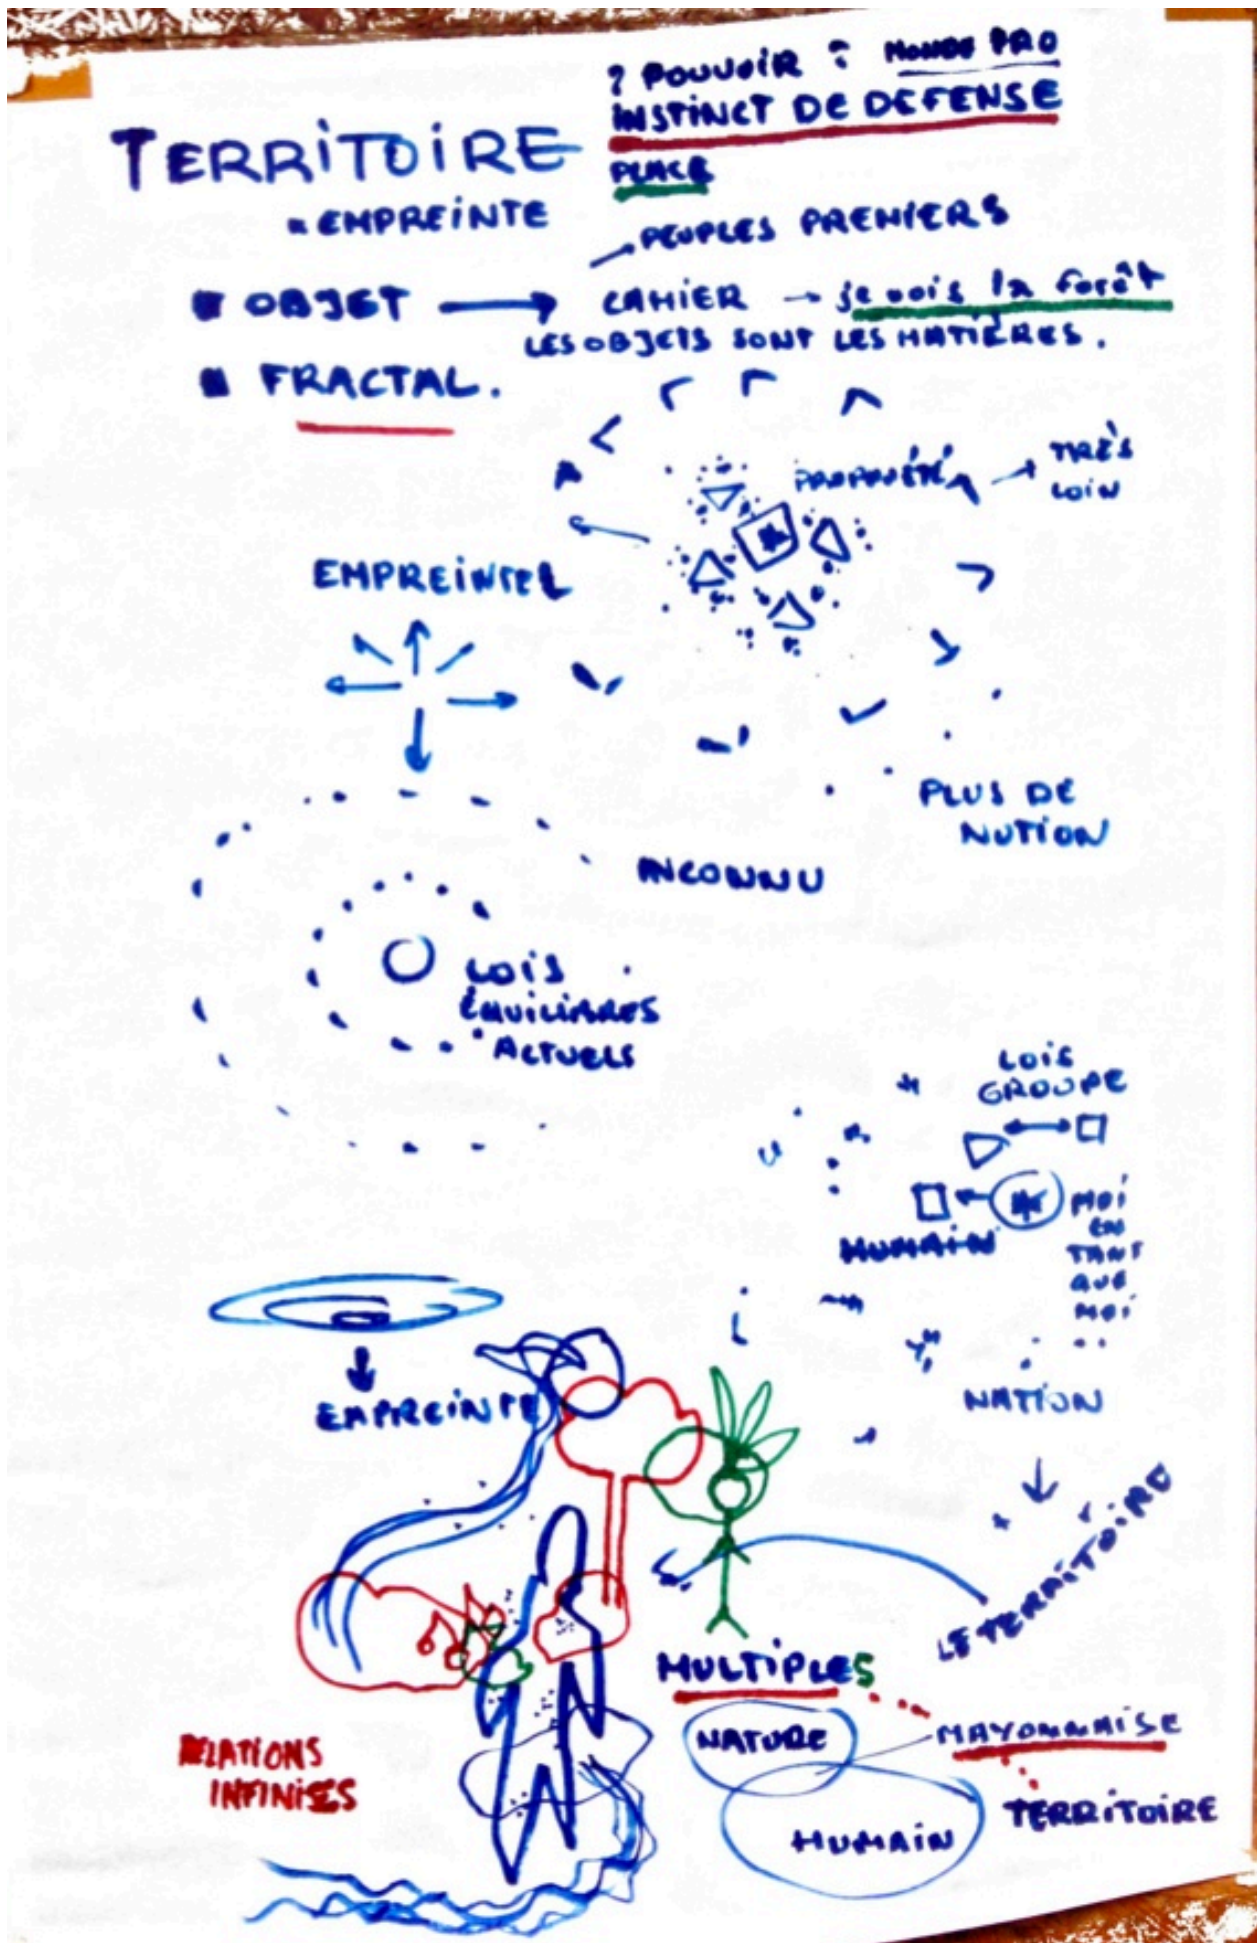 ? POUVOIR : MONDE PRO
INSTINCT DE DEFENSE
PLACE
TERRITOIRE
= EMPREINTE
PEUPLES PREMIERS
OBJET → CAHIER → je vois la forêt
LES OBJETS SONT LES MATIÈRES.
FRACTAL.
PROPRIÉTÉ → TRÈS
LOIN
EMPREINTE
PLUS DE
NOTION
INCONNU
LOIS
ÉQUILIBRES
ACTUELS
LOIS
GROUPE
HUMAIN
MOI
EN
TANT
QUE
MOI
NATION
EMPREINTE
LE TERRITOIRE
MULTIPLES
NATURE
MAYONNAISE
HUMAIN
TERRITOIRE
RELATIONS
INFINIES